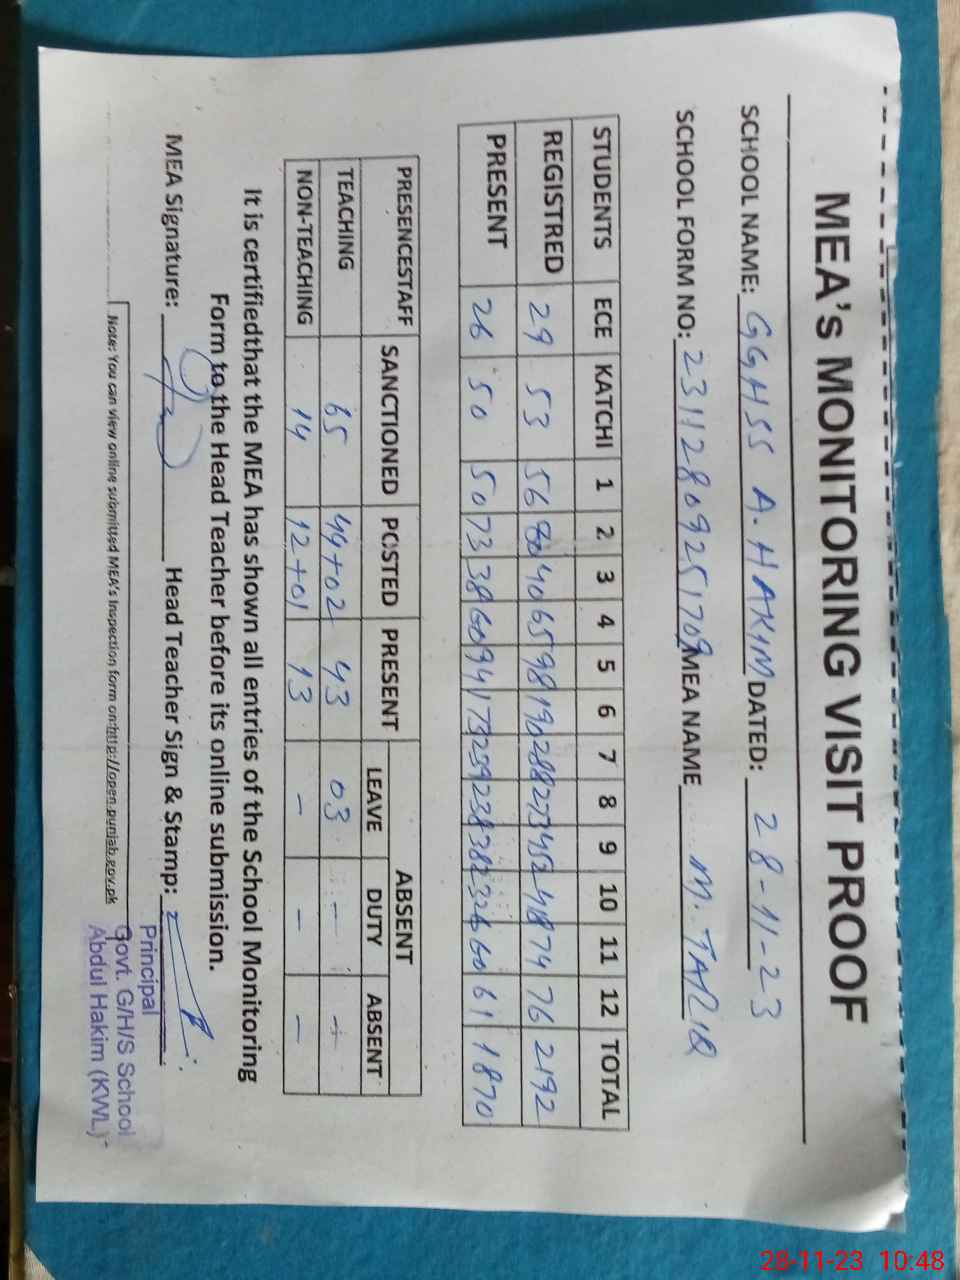 MEA's MONITORING VISIT PROOF
SCHOOL NAME: GGHSS A. HAKIM DATED: 28-11-23
SCHOOL FORM NO: 23112809251709 MEA NAME M. TARIQ
STUDENTS ECE KATCHI 1 2 3 4 5 6 7 8 9 10 11 12 TOTAL
REGISTRED 29 53 56 80 40 65 98 190 288 273 452 418 74 76 2192
PRESENT 26 50 50 73 38 60 94 173 239 238 382 326 60 61 1870
PRESENCESTAFF SANCTIONED POSTED PRESENT ABSENT
LEAVE DUTY ABSENT
TEACHING 65 44+02 43 03 - -
NON-TEACHING 14 12+01 13 - - -
It is certifiedthat the MEA has shown all entries of the School Monitoring
Form to the Head Teacher before its online submission.
MEA Signature: Head Teacher Sign & Stamp:
Principal
Govt. G/H/S School
Abdul Hakim (KWL)
Note: You can view online submitted MEA's Inspection form on:http://open.punjab.gov.pk
28-11-23 10:48